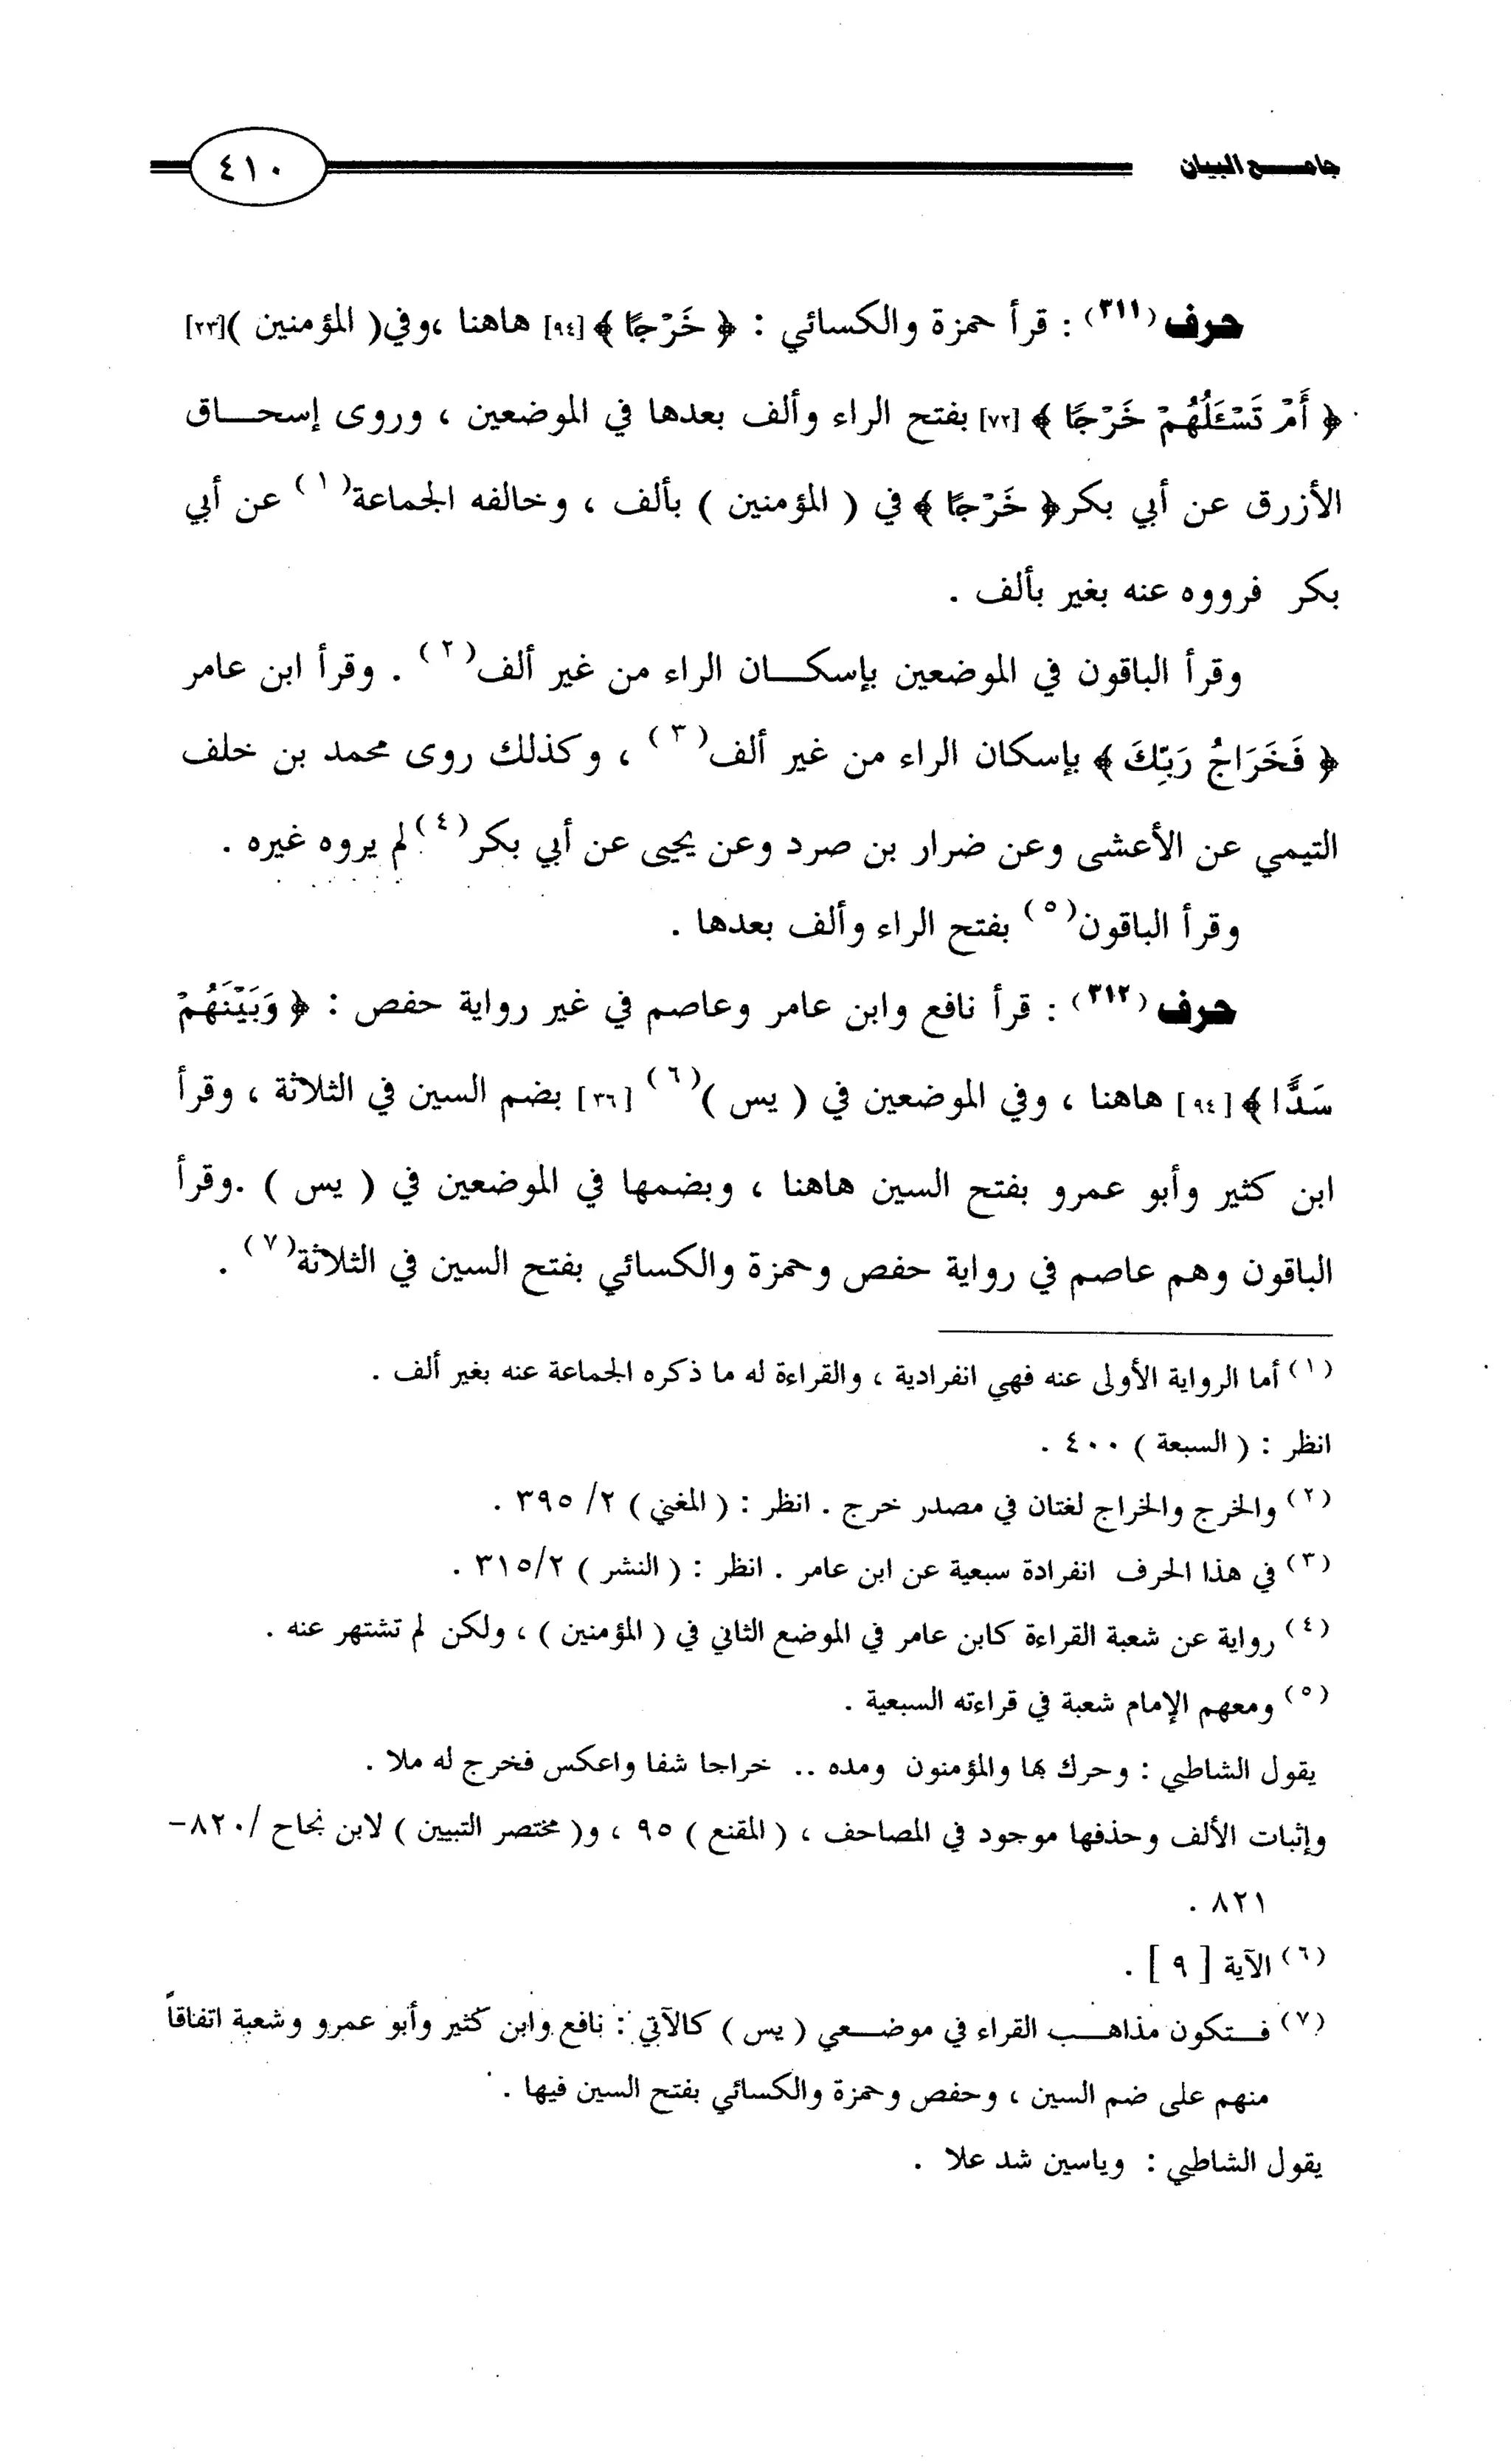 جامـــع البيان
٤١٠
حرف (٣١١) : قرأ حمزة والكسائي : ﴿ خَرْجًا ﴾[٩٤] هاهنا ،وفي( المؤمنين )[٢٣]
﴿ أَمْ تَسْـَٔلُهُمْ خَرْجًا ﴾ [٧٢] بفتح الراء وألف بعدها في الموضعين ، وروى إسحـــاق
الأزرق عن أبي بكر﴿ خَرْجًا ﴾في ( المؤمنين ) بألف ، وخالفه الجماعة(١) عن أبي
بكر فرووه عنه بغير بألف .
وقرأ الباقون في الموضعين بإسكـــان الراء من غير ألف(٢) . وقرأ ابن عامر
﴿ فَخَرَاجُ رَبِّكَ ﴾ بإسكان الراء من غير ألف(٣) ، وكذلك روى محمد بن خلف
التيمي عن الأعشى وعن ضرار بن صرد وعن يحيى عن أبي بكر(٤) لم يروه غيره .
وقرأ الباقون(٥) بفتح الراء وألف بعدها .
حرف (٣١٢) : قرأ نافع وابن عامر وعاصم في غير رواية حفص : ﴿ وَبَيْنَهُمْ
سَدًّا ﴾[٩٤] هاهنا ، وفي الموضعين في ( يس )(٦) [٣٦] بضم السين في الثلاثة ، وقرأ
ابن كثير وأبو عمرو بفتح السين هاهنا ، وبضمها في الموضعين في ( يس ) .وقرأ
الباقون وهم عاصم في رواية حفص وحمزة والكسائي بفتح السين في الثلاثة(٧) .
(١) أما الرواية الأولى عنه فهي انفرادية ، والقراءة له ما ذكره الجماعة عنه بغير ألف .
انظر : ( السبعة ) ٤٠٠ .
(٢) والخرج والخراج لغتان في مصدر خرج . انظر : ( المغني ) ٢/ ٣٩٥ .
(٣) في هذا الحرف انفرادة سبعية عن ابن عامر . انظر : ( النشر ) ٣١٥/٢ .
(٤) رواية عن شعبة القراءة كابن عامر في الموضع الثاني في ( المؤمنين ) ، ولكن لم تشتهر عنه .
(٥) ومعهم الإمام شعبة في قراءته السبعية .
يقول الشاطبي : وحرك بها والمؤمنون ومده .. خراجا شفا واعكس فخرج له ملا .
وإثبات الألف وحذفها موجود في المصاحف ، ( المقنع ) ٩٥ ، و( مختصر التبيين ) لابن نجاح /٨٢٠-
٨٢١ .
(٦) الآية [ ٩ ] .
(٧) فـتكون مذاهـــب القراء في موضـــعي ( يس ) كالآتي : نافع وابن كثير وأبو عمرو وشعبة اتفاقاً
منهم على ضم السين ، وحفص وحمزة والكسائي بفتح السين فيها .
يقول الشاطبي : وياسين شد علا .